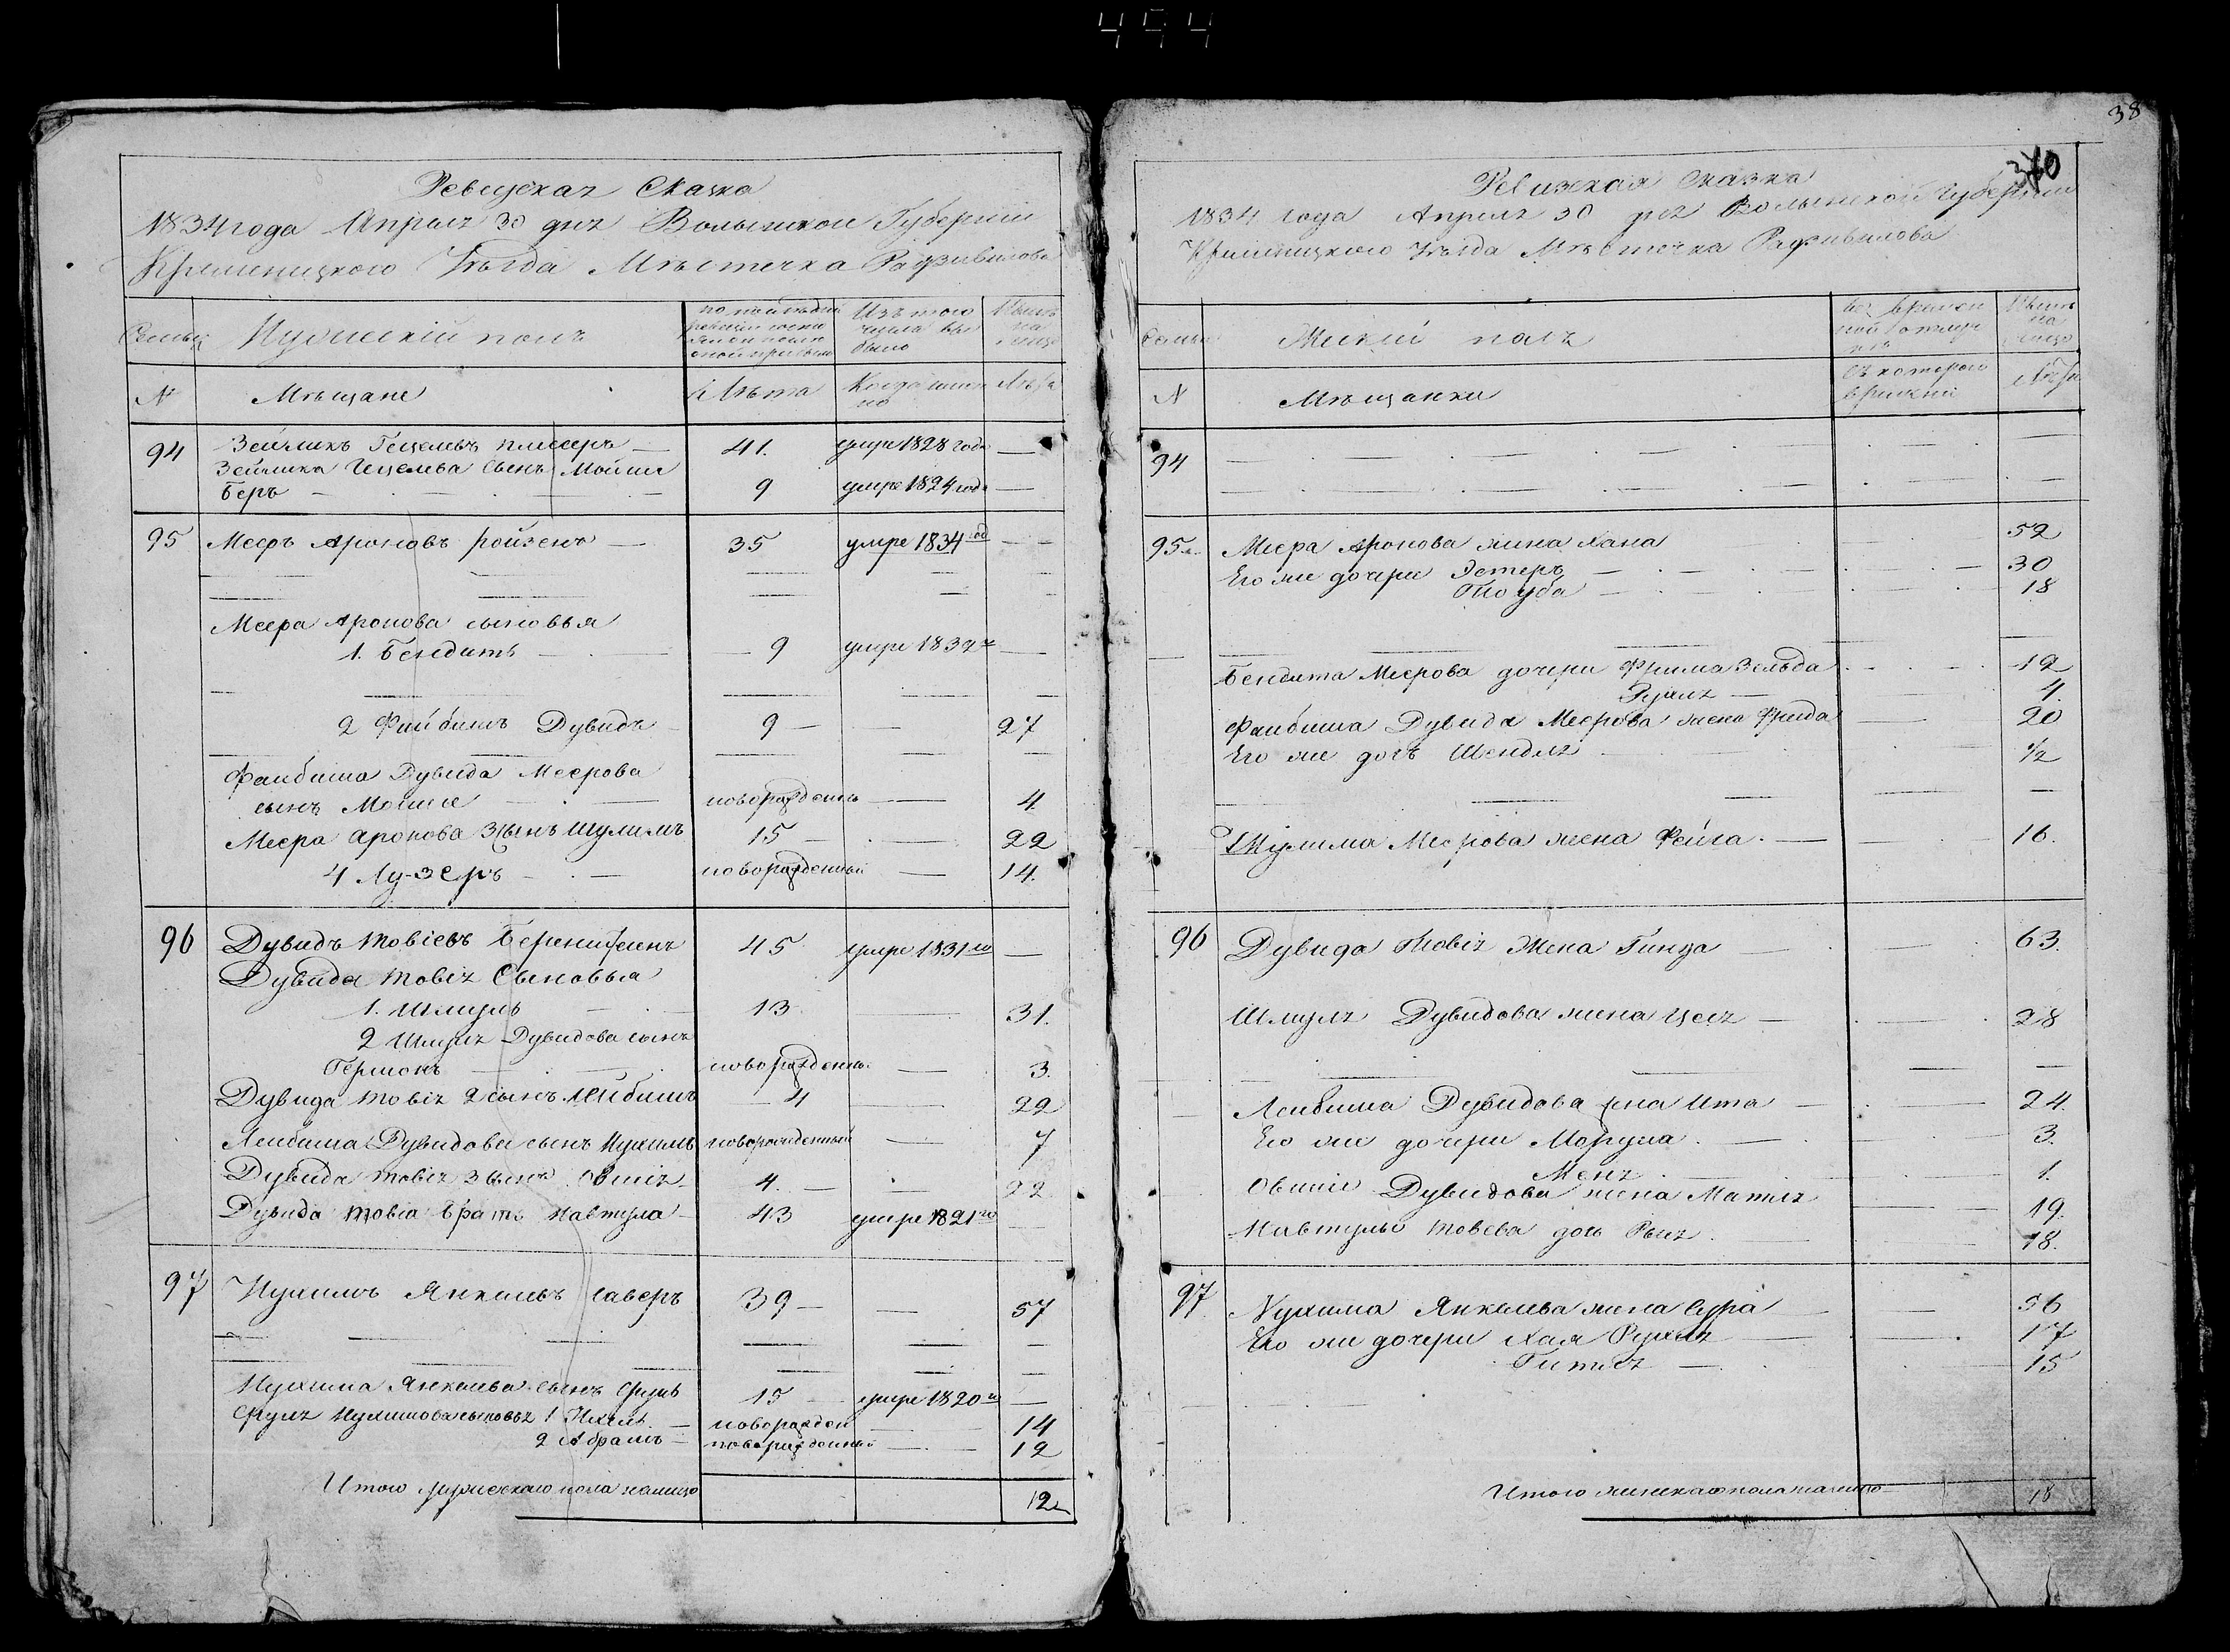 444
Ревизская Сказка
1834 года Апреля 30 дня Волынской Губернии
Кременецкого Уѣзда Мѣстечка Радзивилова
Семьи
Мужескій полъ
Изъ того числа выбыло
Нынѣ на лицо
№
Мѣщане
Лѣта
Когда именно
Лѣта
94
Зейликъ Гецелевъ
41.
умре 1828 года
Зейлика Гецелева сынъ Мойше
Беръ
9
умре 1824 года
95
Мееръ Ароновъ Ройзенъ
35
умре 1834 год
Меера Аронова сыновья
1. Бендитъ
9
умре 1832
2 Файбишъ Дувидъ
9
27
Файбиша Дувида Меерова
сынъ Мошке
новорожденъ
4
Меера Аронова 3 сынъ Шулимъ
15
22
4 Лузеръ
новорожденный
14.
96
Дувидъ Товіевъ
45
умре 1831 го
Дувида Товія Сыновья
1. Шмуль
13
31.
2 Шмуля Дувидова сынъ
Гершонъ
новорожденъ
3.
Дувида Товія 2 сынъ Лейбишъ
4
22
Лейбиша Дувидова сынъ Нухимъ
новорожденный
7
Дувида Товія 3 сынъ Овшія
4.
22
Дувида Товіа братъ Навтула
43
умре 1821 го
97
Нухимъ Янкелевъ
39
57
Нухима Янкелева сынъ Сруль
15
умре 1820 го
Сруля Нухимова сыновья 1 Ихель
новорожден
14
2 Абрамъ
новорожденный
12
Итого мужескаго пола налицо
12
38
370
Ревизская Сказка
1834 года Апреля 30 дня Волынской Губернии
Кременецкого Уѣзда Мѣстечка Радзивилова
Семьи
Женскій полъ
во временной отлучкѣ
Нынѣ на лицо
№
Мѣщанки
съ которого времени
Лѣта
94
95
Меера Аронова жена Хана
52
Его же дочери Эстеръ
30
Тоуба
18
Бендита Меерова дочери Фрима Зельда
12
Рухля
4.
Файбиша Дувида Меерова жена Фрида
20
Его же дочь Шендля
1/2
Шулима Меерова жена Фейга
16.
96
Дувида Товія Жена Гинда
63.
Шмуля Дувидова жена Цея
28
Лейбиша Дувидова жена Ита
24.
Его же дочери
3.
Меня
1.
Овшія Дувидова жена Матля
19.
Навтулы Товіева дочь Рыя
18.
97
Нухима Янкелева жена Сура
56
Его же дочери Хая Рухля
17
Гитля
15
Итого женскаго пола налицо
18